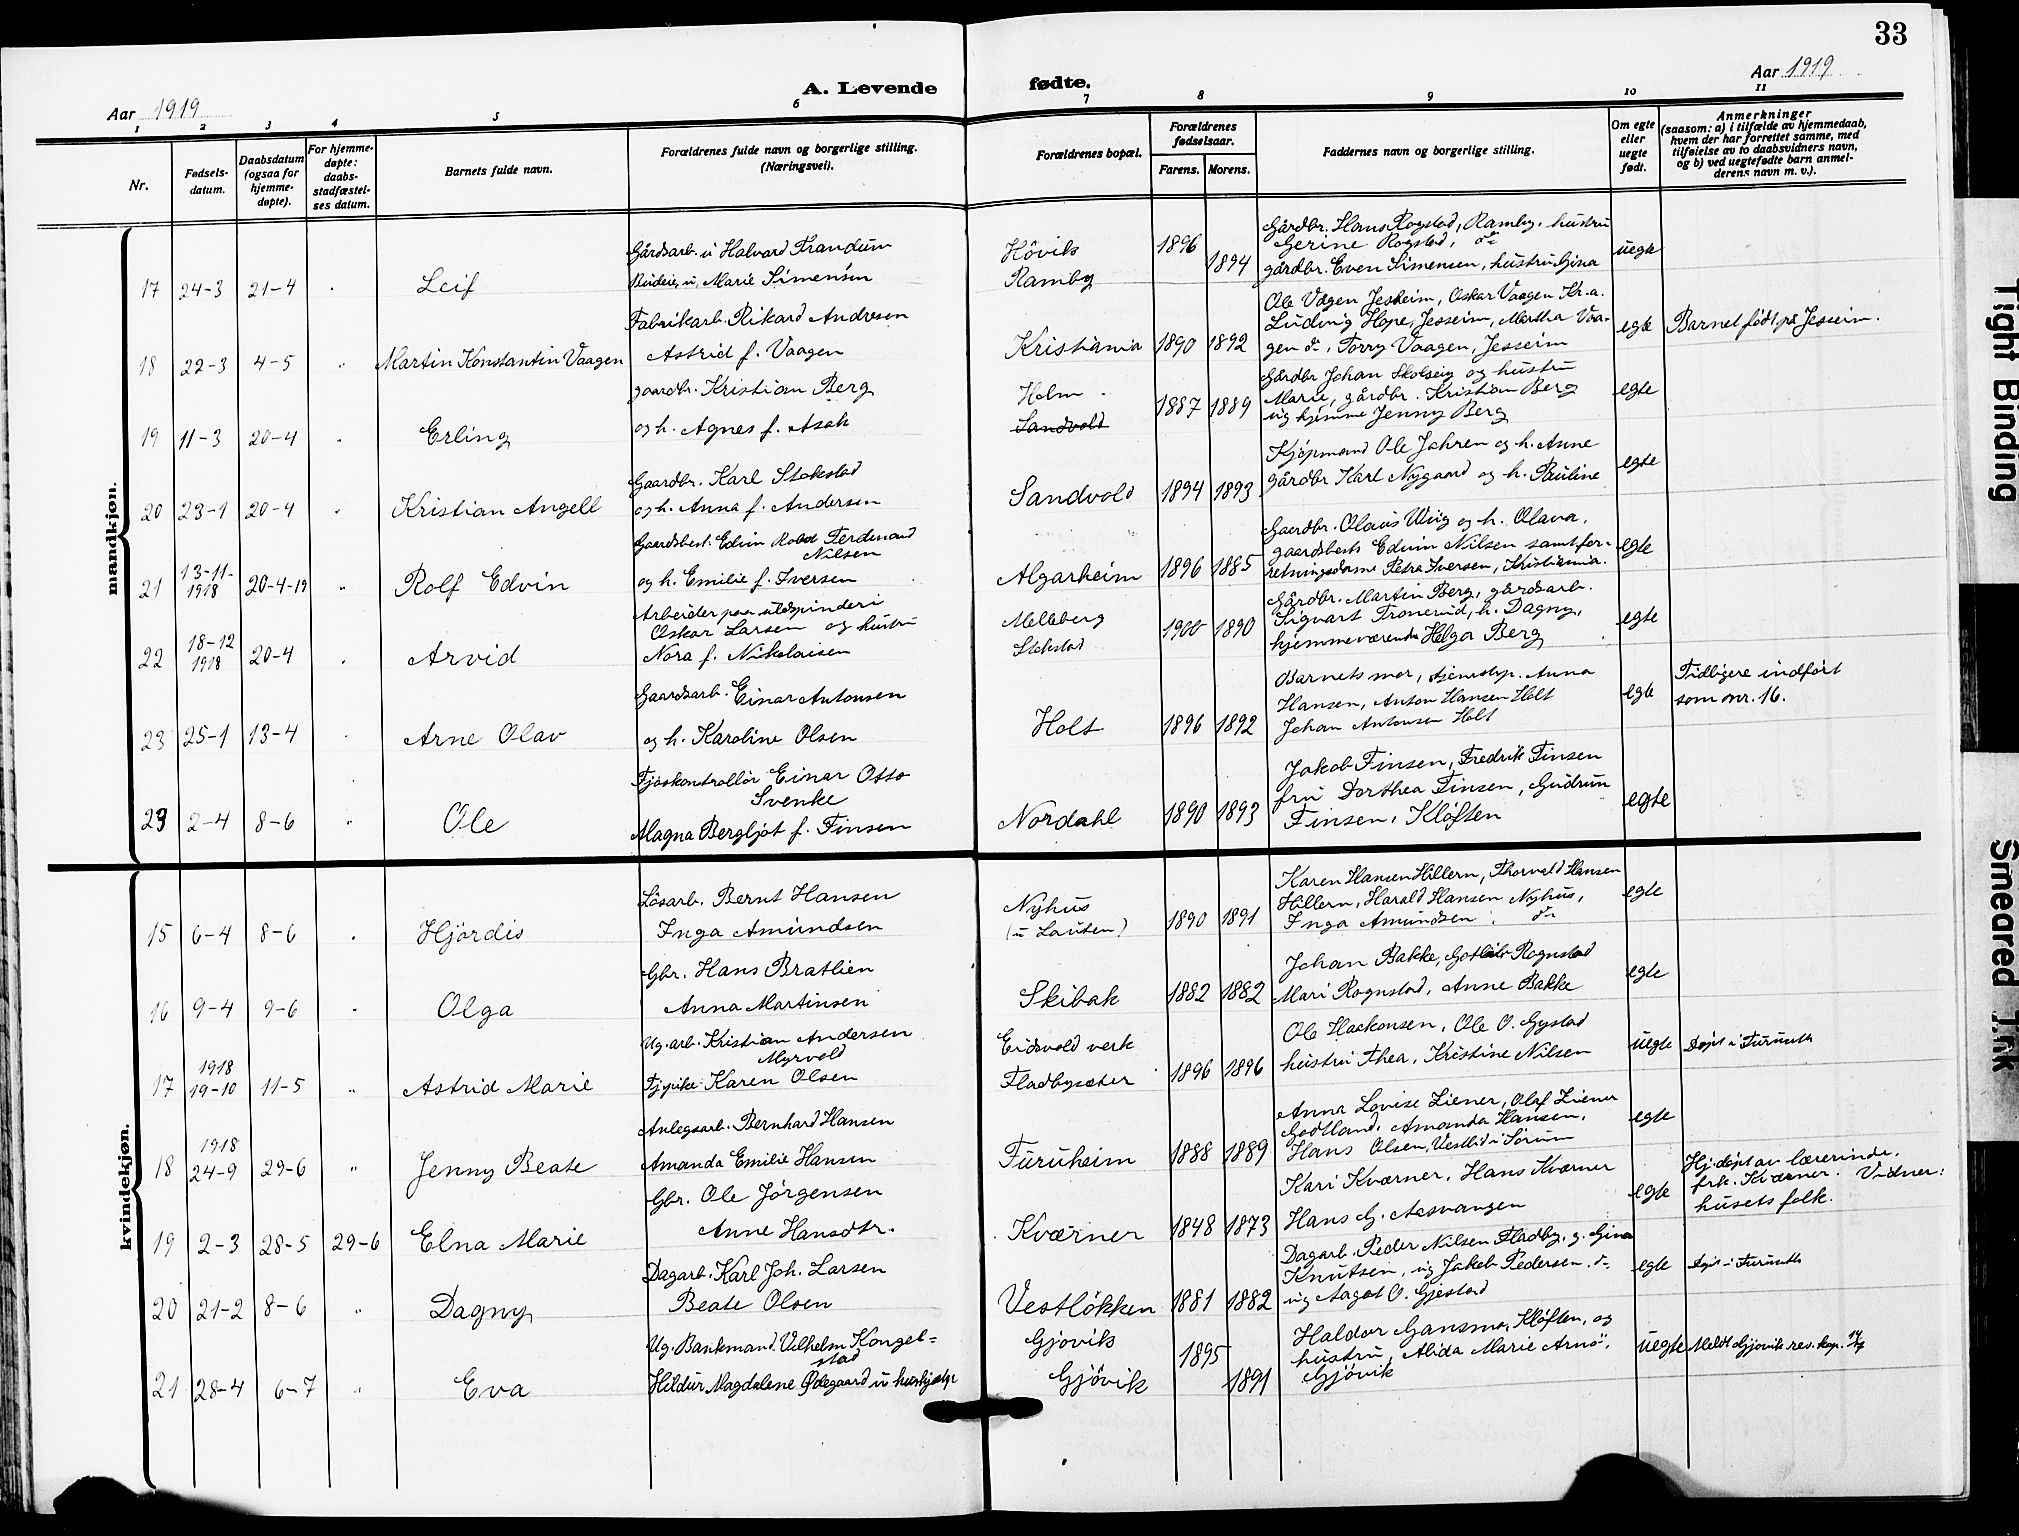 33
A. Levende fødte.
Aar 1919
Aar 1919
1 2 3 4 5 6 7 8 9 10 11
Nr.
Fødsels-datum.
Daabsdatum (ogsaa for hjemme-døpte).
For hjemme-døpte: daabs-stadfæstel-ses datum.
Barnets fulde navn.
Forældrenes fulde navn og borgerlige stilling. (Næringsvei).
Forældrenes bopæl.
Forældrenes fødselsaar.
Farens. Morens.
Faddernes navn og borgerlige stilling.
Om egte eller uegte født.
Anmerkninger
(saasom: a) i tilfælde av hjemmedaab, hvem der har forrettet samme, med tilføielse av to daabsvidners navn, og b) ved uegtefødte barn anmel-derens navn m. v.).
mandkjøn.
17 24-3 21-4 Leif
Gårdsarb. u Halvard Trandum
Budeie, u, Marie Simensen
Hövik
Ramby
1896 1894
Gårdbr. Hans Rogstad, Ramby, hustru
Gerine Rogstad, do
gårdbr. Even Simensen, hustru Gina
uegte
18 22-3 4-5 " Martin Konstantin Vaagen
Fabrikarb. Rikard Andresen
Astrid f. Vaagen
Kristiania 1890 1892
Ole Vågen Jesheim, Oskar Vaagen Kr.a.
Ludvig Hope, Jesseim, Martha Vaa-
gen do, Torry Vaagen, Jesseim
egte
Barnet født på Jesseim.
19 11-3 20-4 Erling
gaardbr. Kristian Berg
og h. Agnes f. Asak
Holm
Sandvold
1887 1889
Gårdbr Johan Skolseig og hustru
Marie, gårdbr. Kristian Berg
ug hjemme Jenny Berg
egte
20 23-1 20-4 Kristian Angell
Gaardbr. Karl Stokstad
og h. Anna f. Andersen
Sandvold 1894 1893
Kjøpmand Ole Jahren og h. Anne
gårdbr Karl Nygaard og h. Pauline
egte
21 13-11-1918 20-4-19 " Rolf Edvin
Gaardsbest. Edvin Ferdinand
Nilsen
og h. Emilie f. Iversen
Algarheim 1896 1885
Gaardbr. Olaus Wiig og h. Olava,
gaardsbest Edvin Nilsen samt for-
retningsdame Petra Iversen, Kristiania.
egte
22 18-12 1918 20-4 Arvid
Arbeider paa uldspinderi
Oskar Larsen og hustru
Nora f. Nikolaisen
Melleberg
Stokstad
1900 1890
Gårdbr. Martin Berg, gårdsarb.
Sigvart Tronerud, h. Dagny,
hjemmeværende Helga Berg
egte
23 25-1 13-4 Arne Olav
Gaardsarb. Einar Antonsen
og h. Karoline Olsen
Holt 1896 1892
Barnets mor, tjenestep. Anna
Hansen, Anton Hansen Holt
Johan Antonsen Holt
egte
Tidligere indført
som nr. 16.
23 2-4 8-6 " Ole
Fjøskontrollør Einar Otto
Svenke
Magna Bergljot f. Finsen
Nordahl 1890 1893
Jakob Finsen, Fredrik Finsen
fru Dorthea Finsen, Gudrun
Finsen, Kløften
egte
kvindekjøn.
15 6-4 8-6 Hjördis
Løsarb. Bernt Hansen
Inga Amundsen
Nyhus
(u Lauten)
1890 1891
Karen Hansen Hillern, Thorvald Hansen
Hillern, Harald Hansen Nyhus,
Inga Amundsen do
egte
16 9-4 9-6 Olga
Gbr. Hans Bratlien
Anna Martinsen
Skibak 1882 1882
Johan Bakke, Gotlieb Rognstad
Mari Rognstad, Anne Bakke
egte
17 1918 19-10 11-5 " Astrid Marie
Ug. arb. Kristian Andersen
Myrvold
Tjpike Karen Olsen
Eidsvold verk
Fladbysæter
1896 1896
Ole Haakonsen, Ole O. Gystad
hustru Thea, Kristine Nilsen
uegte
Døpt i Furuseth
18 1918 24-9 29-6 " Jenny Beate
Anlegsarb. Bernhard Hansen
Amanda Emilie Hansen
Furuheim 1888 1889
Anna Lovise Ziener, Olaf Ziener
Godtland, Amanda Hansen,
Hans Olsen, Vestlid i Sørum
egte
19 2-3 28-5 29-6 Elna Marie
Gbr. Ole Jörgensen
Anne Hansdtr.
Kværner 1848 1873
Kari Kværner, Hans Kværner
Hans G. Aasvangen
egte
Hj.døpt av lærerinde,
frk. Kværner. Vidner:
husets folk.
20 21-2 8-6 " Dagny
Dagarb. Karl Joh. Larsen
Beate Olsen
Vestlökken 1881 1882
Dagarb. Peder Nilsen Fladby, g. Gina
Knutsen, ug Jakob Pedersen do
ug Aagot O. Gjestad
egte
Døpt i Furuseth
21 28-4 6-7 " Eva
Ug. Bankmand Vilhelm Kongel-
stad
Hildur Magdalene Ødegaard u hushjælp
Gjøvik
Gjövik
1895 1891
Haldor Gansmo, Kløften, og
hustru, Alida Marie Arnö,
Gjövik
uegte
Meldt Gjøvik res. kap. 14/7